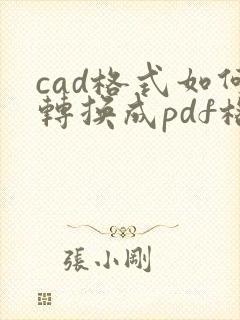 cad格式如何
轉換成pdf格
張小剛